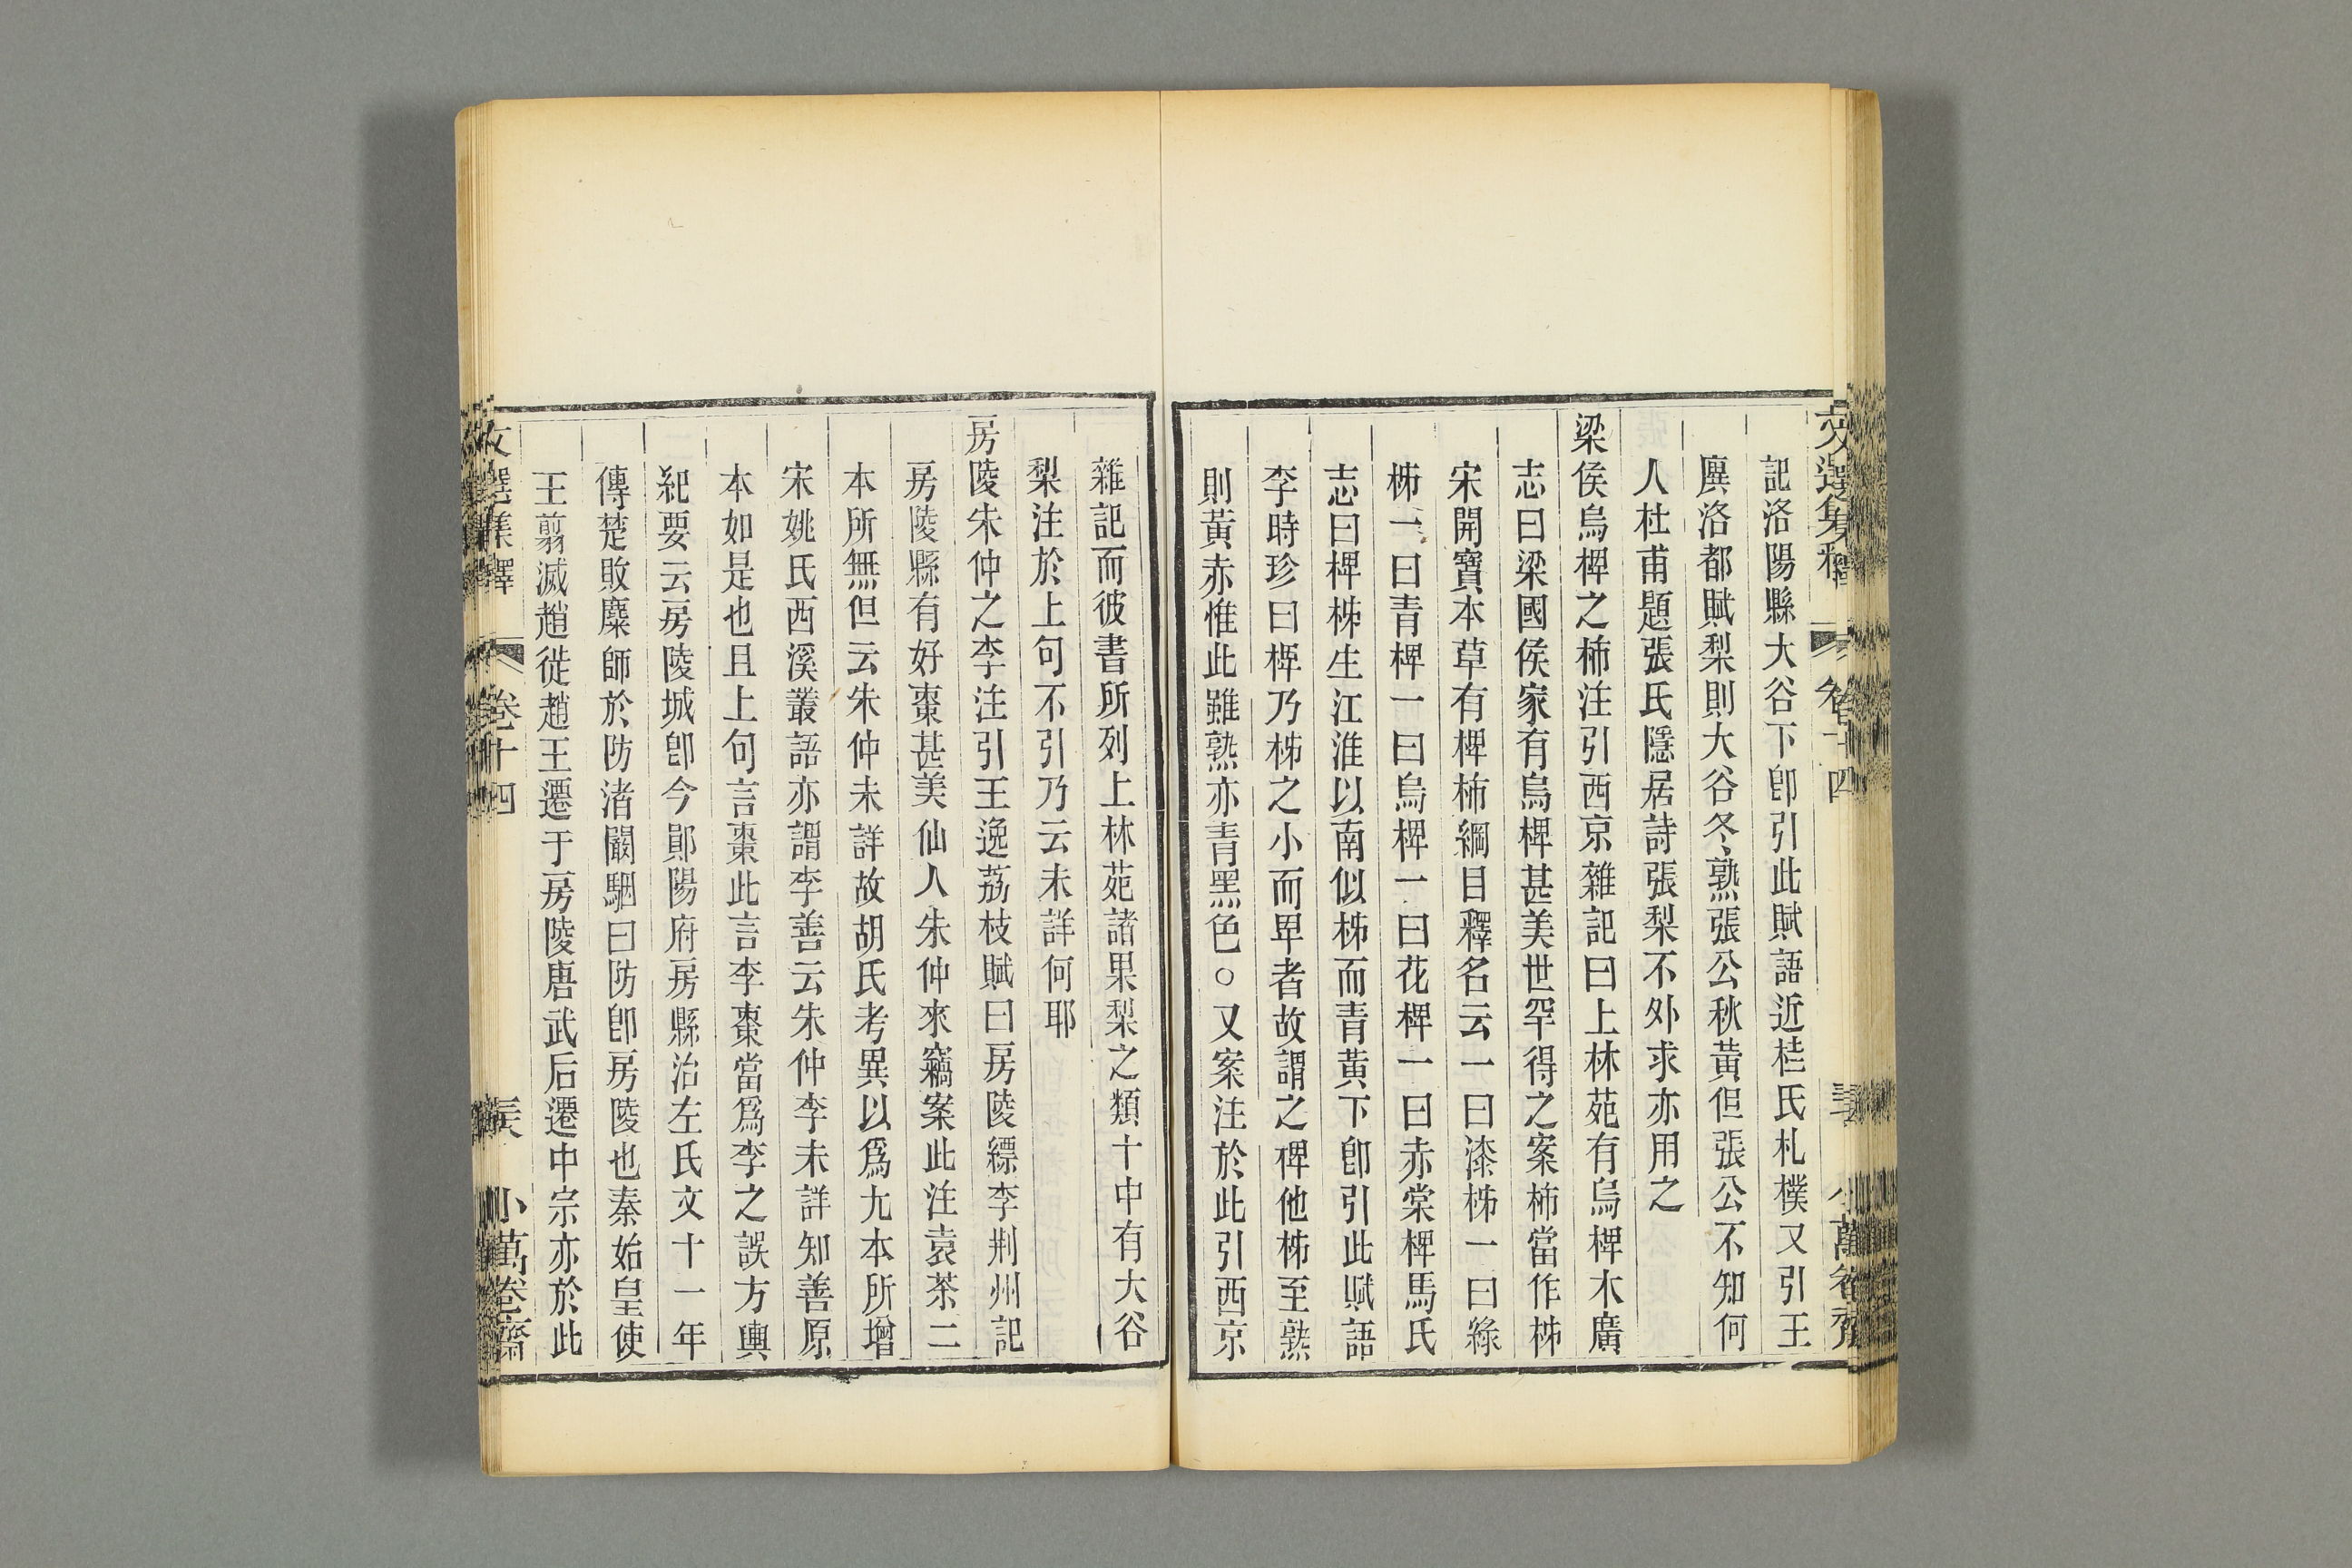 文選集釋 卷十四 小萬卷齋
記洛陽縣大谷下卽引此賦語近桂氏札樸又引王
廙洛都賦梨則大谷冬熟張公秋黃但張公不知何
人杜甫題張氏隱居詩張梨不外求亦用之
梁侯烏椑之柿注引西京雜記曰上林苑有烏椑木廣
志曰梁國侯家有烏椑甚美世罕得之案柿當作柹
宋開寶本草有椑柿綱目釋名云一曰漆柹一曰綠
柹一曰青椑一曰烏椑一曰花椑一曰赤棠椑馬氏
志曰椑柹生江淮以南似柹而青黃下卽引此賦語
李時珍曰椑乃柹之小而卑者故謂之椑他柹至熟
則黃赤惟此雖熟亦青黑色○又案注於此引西京
雜記而彼書所列上林苑諸果梨之類十中有大谷
梨注於上句不引乃云未詳何耶
房陵朱仲之李注引王逸荔枝賦曰房陵縹李荆州記
房陵縣有好棗甚美仙人朱仲來竊案此注袁茶二
本所無但云朱仲未詳故胡氏考異以爲尤本所增
宋姚氏西溪叢語亦謂李善云朱仲李未詳知善原
本如是也且上句言棗此言李棗當爲李之誤方輿
紀要云房陵城卽今鄖陽府房縣治左氏文十一年
傳楚敗麇師於防渚闞駰曰防卽房陵也秦始皇使
王翦滅趙徙趙王遷于房陵唐武后遷中宗亦於此
文選集釋 卷十四 小萬卷齋